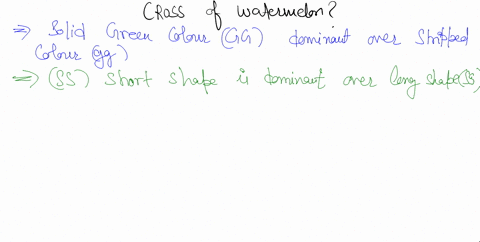 Cross of watermelon?
⇒ Solid Green Colour (GG) dominant over Stripped
Colour (gg)
⇒ (SS) Short shape is dominant over long shape (ss)